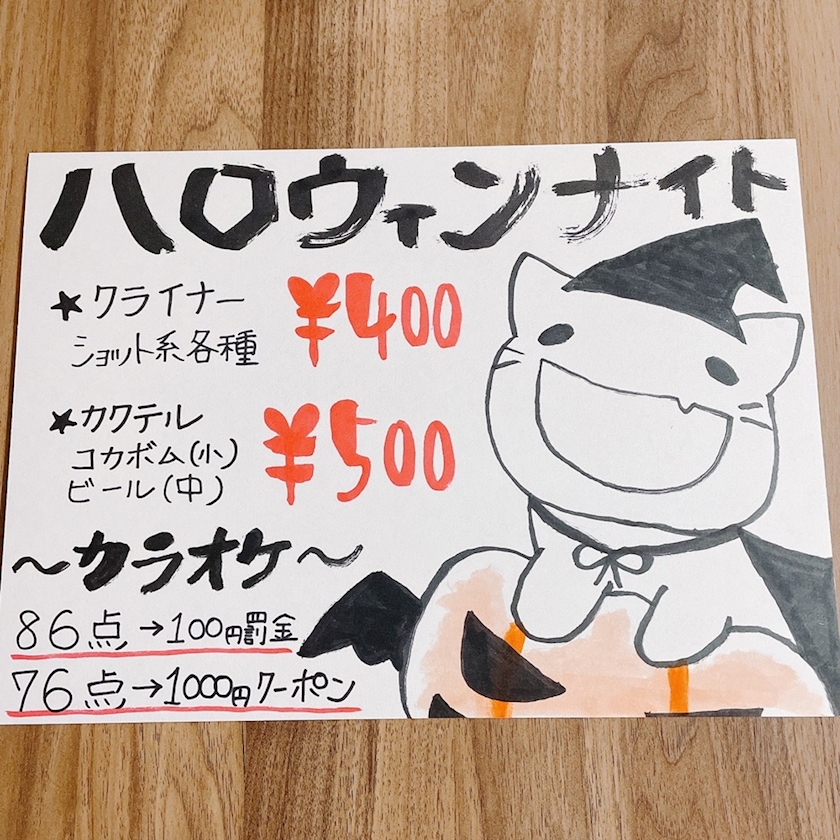 ハロウィンナイト
★クライナー ¥400
ショット系各種
★カクテル ¥500
コカボム(小)
ビール(中)
〜カラオケ〜
86点→100円罰金
76点→1000円クーポン